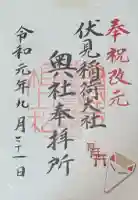 奉祝改元
伏見稲荷大社
奥社奉拝所
令和元年九月二十一日